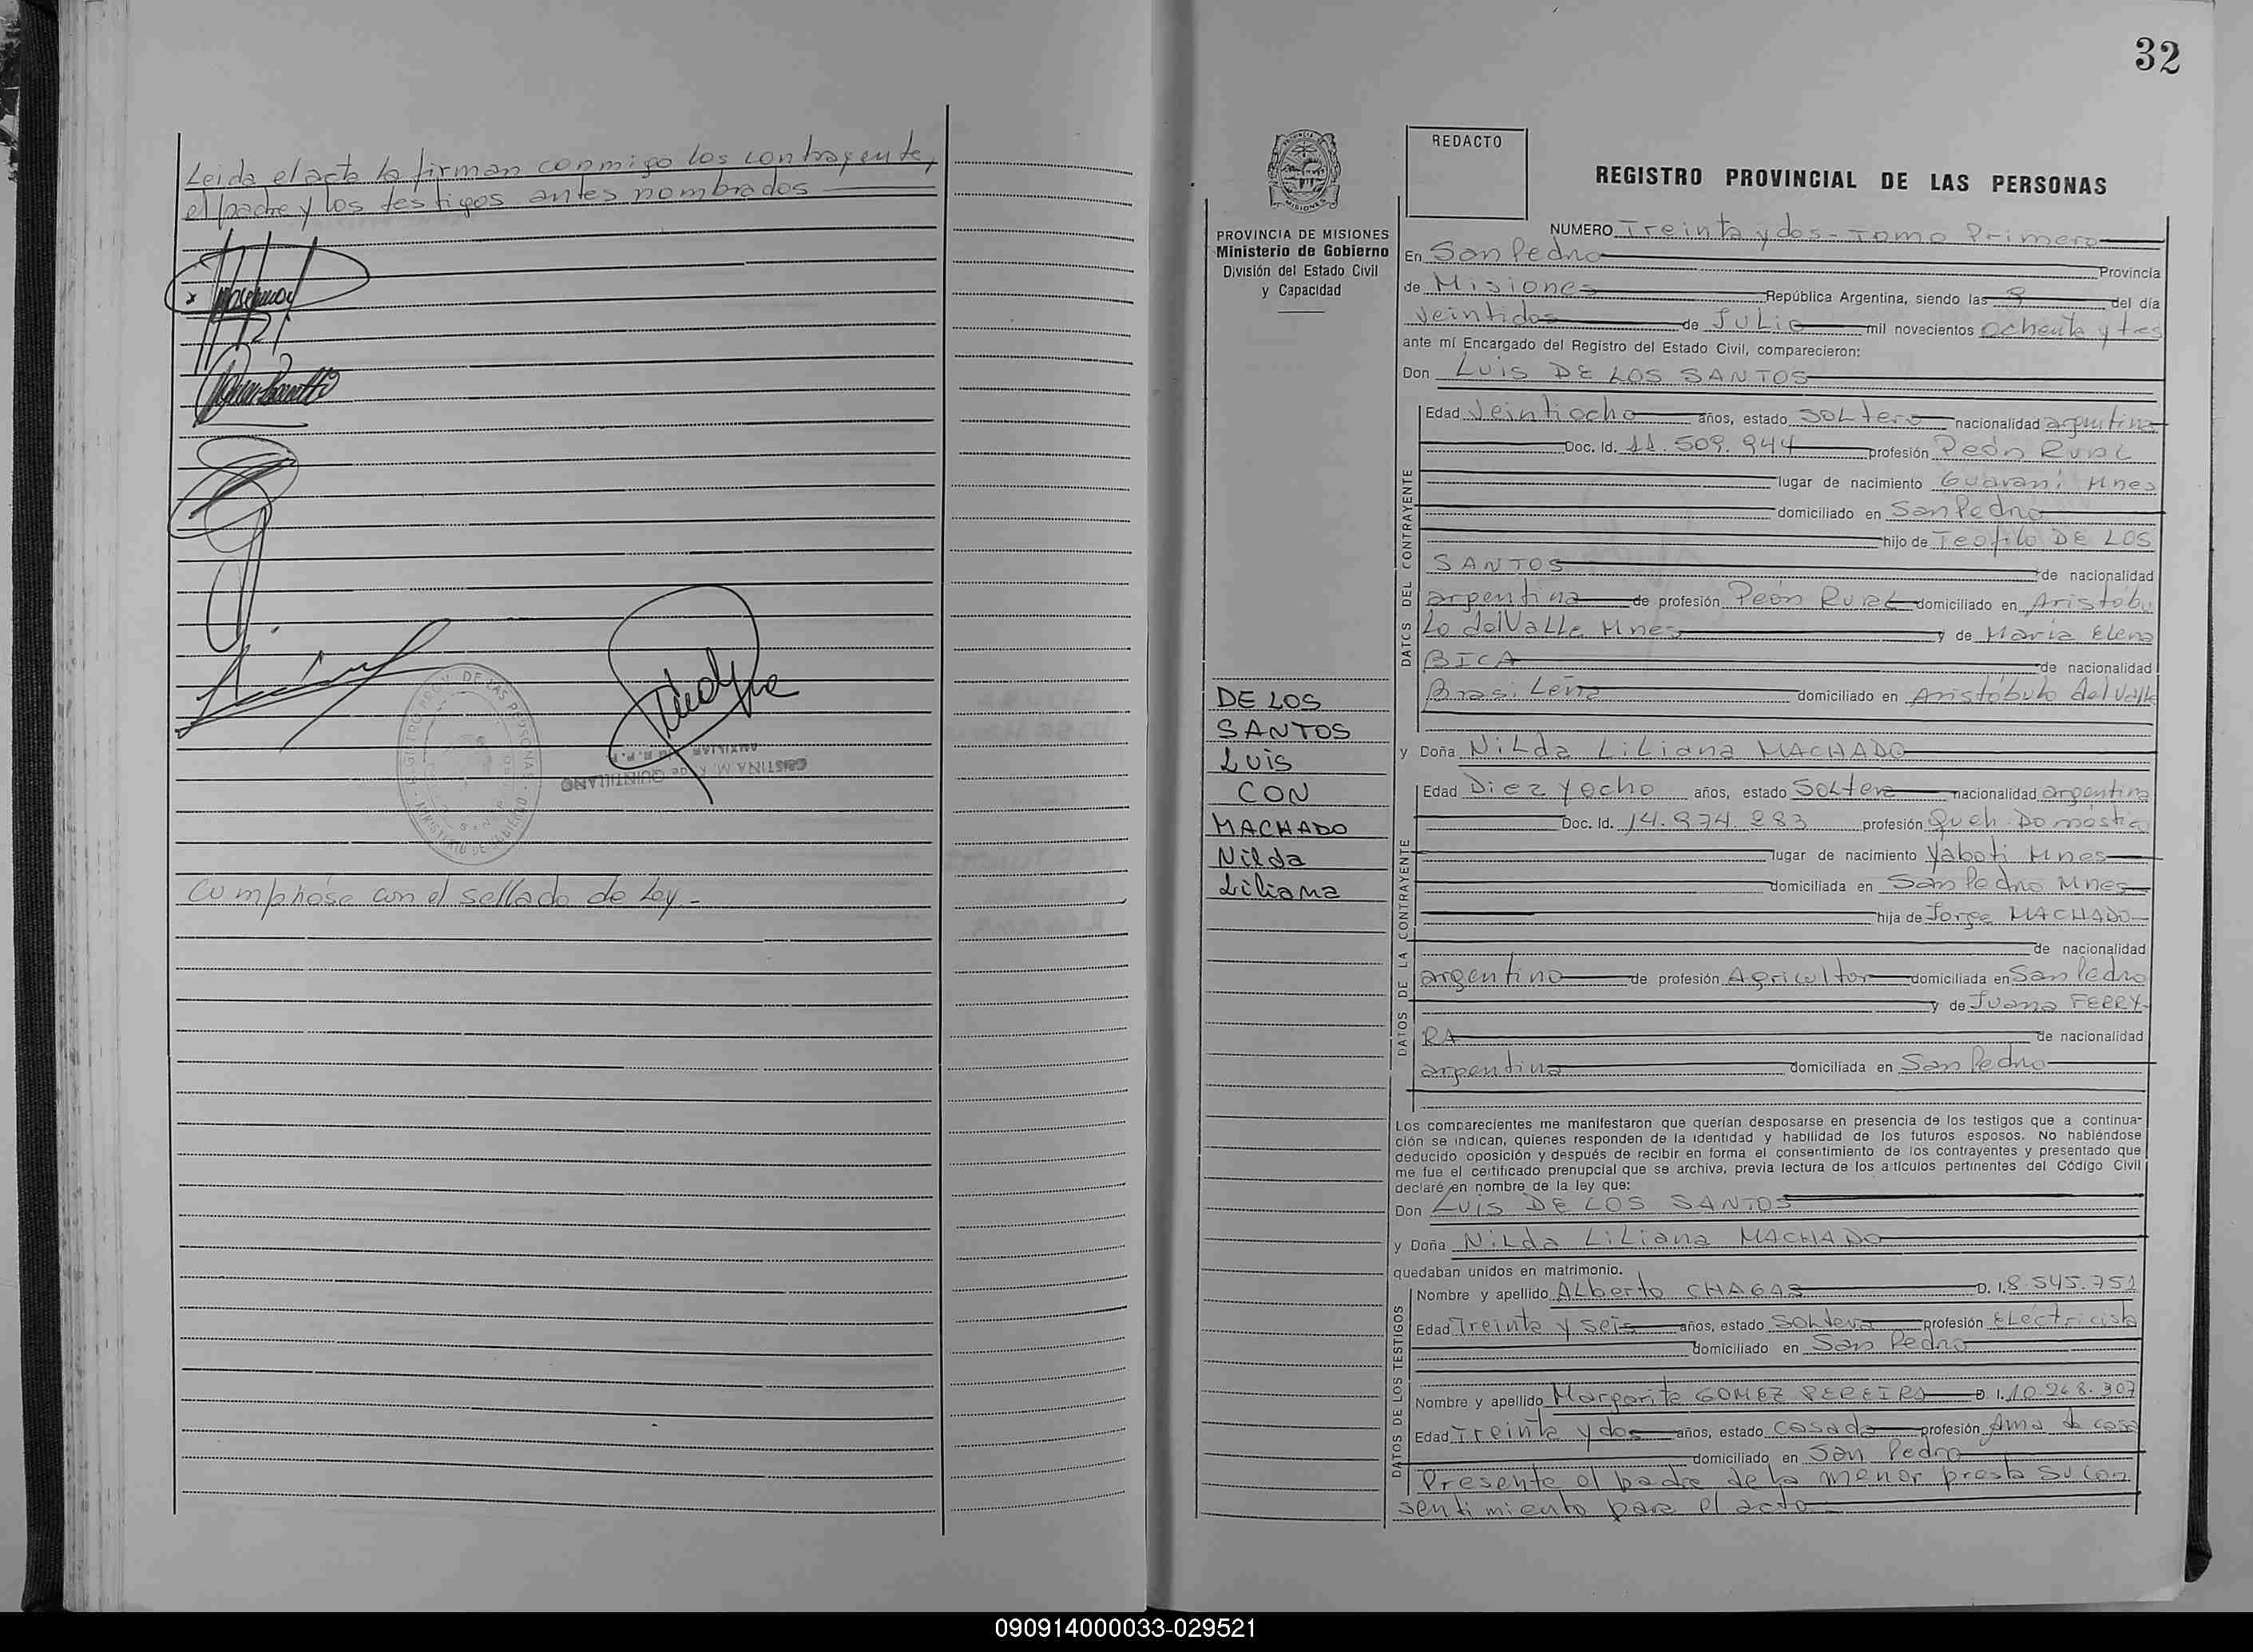 Leida el acta la firman conmigo los contrayente,
el padre y los testigos antes nombrados
CRISTINA M. R. de QUINTILLANO
Cumplióse con el sellado de Ley.-
32
PROVINCIA DE MISIONES
Ministerio de Gobierno
División del Estado Civil
y Capacidad
DE LOS
SANTOS
Luis
CON
MACHADO
Nilda
Liliana
REDACTO
REGISTRO PROVINCIAL DE LAS PERSONAS
NUMERO Treinta y dos - Tomo Primero
En San Pedro Provincia
de Misiones República Argentina, siendo las 9 del día
veintidos de Julio mil novecientos ochenta y tres
ante mí Encargado del Registro del Estado Civil, comparecieron:
Don Luis DE LOS SANTOS
DATOS DEL CONTRAYENTE
Edad Veintiocho años, estado soltero nacionalidad argentina
Doc. Id. 11.509.944 profesión Peón Rural
lugar de nacimiento Guaraní Mnes
domiciliado en San Pedro
hijo de Teofilo DE LOS
SANTOS de nacionalidad
argentina de profesión Peón Rural domiciliado en Aristobu
lo del Valle Mnes y de María Elena
BICA de nacionalidad
Brasileña domiciliado en Aristóbulo del Valle
y Doña Nilda Liliana MACHADO
DATOS DE LA CONTRAYENTE
Edad Diez y ocho años, estado Soltera nacionalidad argentina
Doc. Id. 14.974.283 profesión Queh. Domestic
lugar de nacimiento Yaboti Mnes
domiciliada en San Pedro Mnes
hija de Jorge MACHADO
de nacionalidad
argentino de profesión Agricultor domiciliada en San Pedro
y de Juana FERRY-
RA de nacionalidad
argentina domiciliada en San Pedro
Los comparecientes me manifestaron que querían desposarse en presencia de los testigos que a continua-
ción se indican, quienes responden de la identidad y habilidad de los futuros esposos. No habiéndose
deducido oposición y después de recibir en forma el consentimiento de los contrayentes y presentado que
me fue el certificado prenupcial que se archiva, previa lectura de los artículos pertinentes del Código Civil
declaré en nombre de la ley que:
Don Luis DE LOS SANTOS
y Doña Nilda Liliana MACHADO
quedaban unidos en matrimonio.
DATOS DE LOS TESTIGOS
Nombre y apellido Alberto CHAGAS D. I. 8.545.751
Edad Treinta y seis años, estado Soltero profesión Electricista
domiciliado en San Pedro
Nombre y apellido Margarita GOMEZ PEREIRA D. I. 10.268.907
Edad Treinta y dos años, estado casada profesión Ama de casa
domiciliado en San Pedro
Presente el padre de la menor presta su con
sentimiento para el acto
090914000033-029521